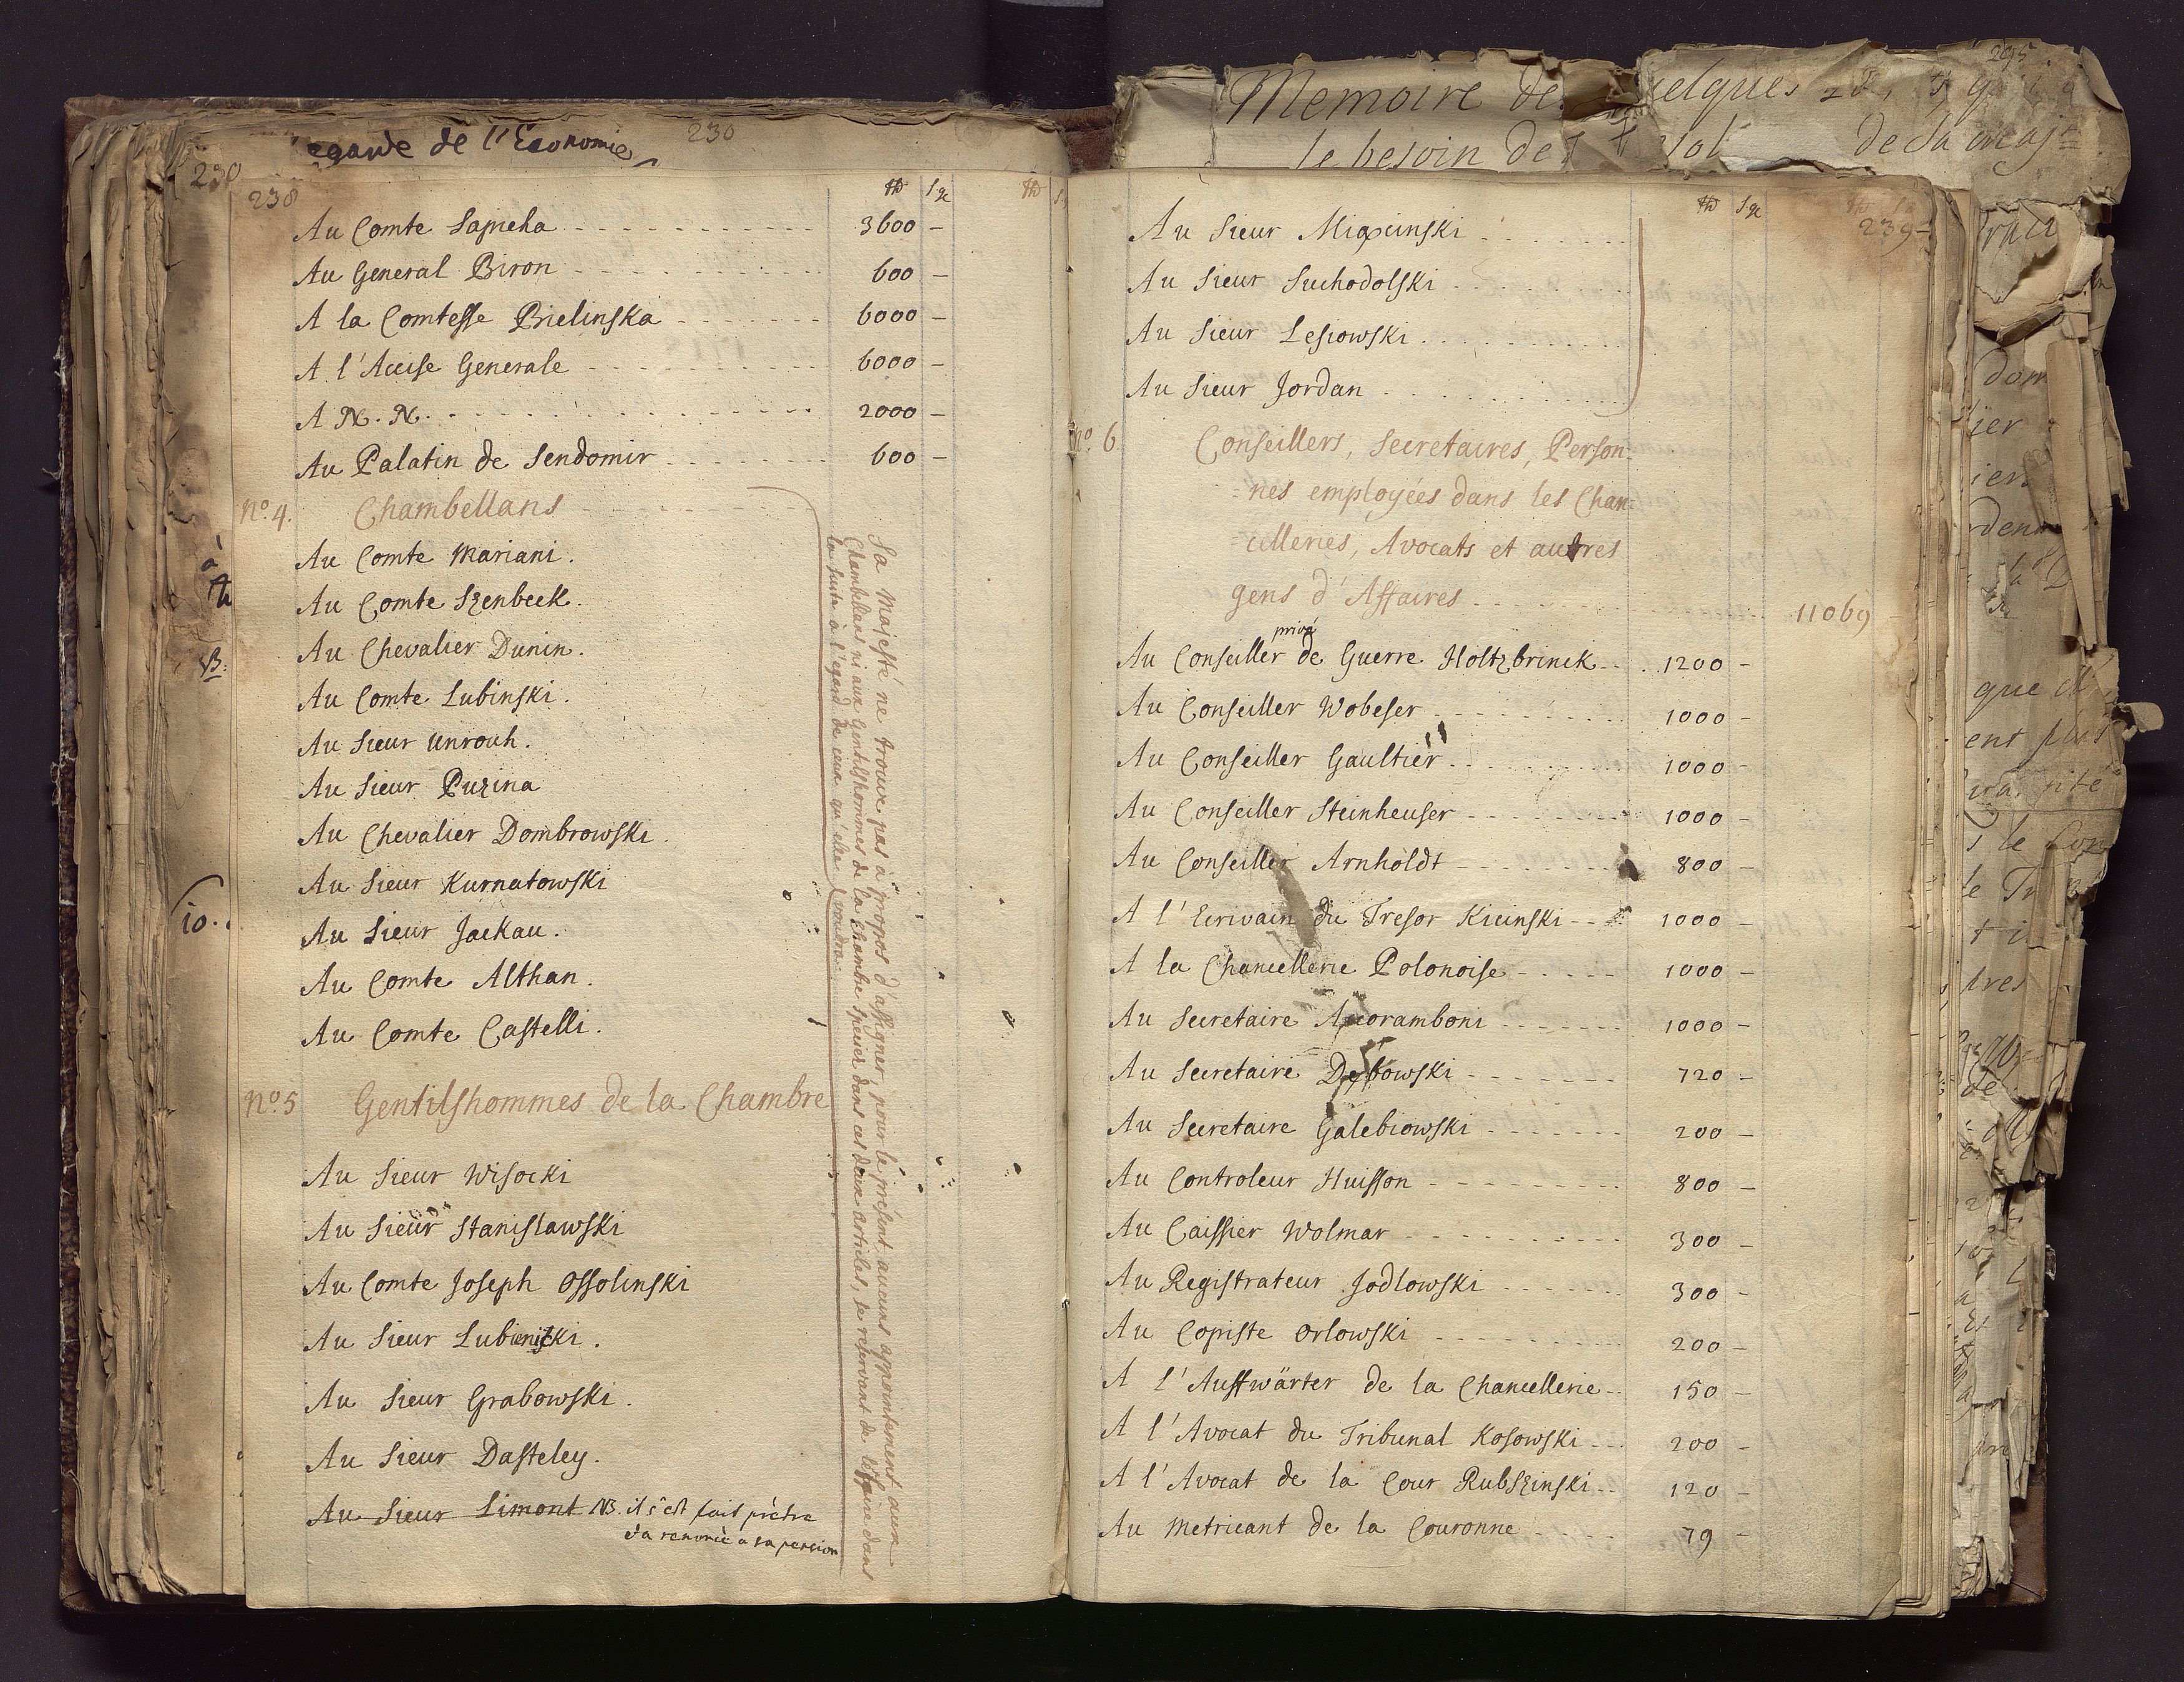 egarde de l'Economie
230
230
238
th gr
th
Au Comte Sapieha 3600 –
Au General Biron 600 –
A la Comtesse Bielinska 6000 –
A l'Accise Generale 6000 –
A N. N. 2000 –
Au Palatin de Sendomir 600 –
No. 4. Chambellans
Au Comte Mariani.
Au Comte Szenbeck.
Au Chevalier Dunin.
Au Comte Lubinski.
Au Sieur Unrouh.
Au Sieur Puzina
Au Chevalier Dombrowski.
Au Sieur Kurnatowski
Au Sieur Jackau.
Au Comte Althan.
Au Comte Castelli.
No. 5 Gentilshommes de la Chambre
Au Sieur Wisocki
Au Sieur Stanislawski
Au Comte Joseph Ossolinski
Au Sieur Lubienicki.
Au Sieur Grabowski.
Au Sieur Dasteley.
Au Sieur Simont NB. il s'est fait prètre
& a renoncè a sa pension
Sa Majesté ne trouve pas à propos d'assigner, pour le present aucuns appointement aux
Chambellans ni aux Gentilshommes de la Chambre specifiez dans ces deux articles, se reservant de disposer dans
la suite à l'egard de ceux qu'elle voudra.
à
th
B.
10.
Memoire de quelques
le besoin de
de Sa Maj
295
th gr
239
Au Sieur Miaczinski
Au Sieur Suchodolski
Au Sieur Lesiowski
Au Sieur Jordan
No. 6. Conseillers, Secretaires, Person=
=nes employées dans les Chan=
=celleries, Avocats et autres
gens d'Affaires 11069
Au Conseiller privé de Guerre Holtzbrinck 1200 –
Au Conseiller Wobeser 1000 –
Au Conseiller Gaultier 1000 –
Au Conseiller Steinheuser 1000 –
Au Conseiller Arnholdt 800 –
A l'Ecrivain du Tresor Kicinski 1000 –
A la Chancellerie Polonoise 1000 –
Au Secretaire Accoramboni 1000 –
Au Secretaire Debowski 720 –
Au Secretaire Galebiowski 200 –
Au Controleur Huisson 800 –
Au Caissier Wolmar 300 –
Au Registrateur Jodlowski 300 –
Au Copiste Orlowski 200 –
A l'Auffwärter de la Chancellerie 150 –
A l'Avocat du Tribunal Kosowski 200 –
A l'Avocat de la Cour Rubszinski 120 –
Au Metricant de la Couronne 79 –
que
ent plus
le
tres
de